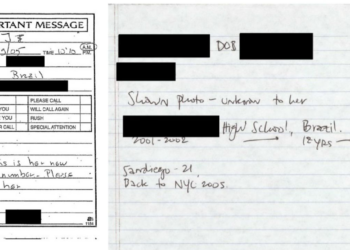 RTANT MESSAGE
J E
/05
TIME 10:10
A.M.
P.M.
Brazil
PLEASE CALL
YOU
WILL CALL AGAIN
YOU
RUSH
R CALL
SPECIAL ATTENTION
is is her new
number. Please
her
DOB
Shown photo - unknown to her
High School, Brazil.
2001-2002
12 yrs
Sandiego - 21
Back to NYC 2005.